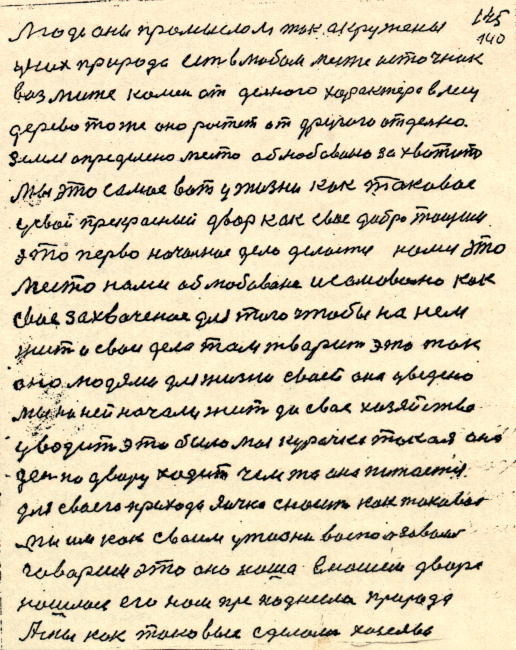 145
140
Люди они промыслом так окружены
у них природа есть в любом месте источник
возмите камен от деного характера в лесу
дерево тоже оно ростет от другого отделно.
Земли определено место облюбовано захватит
мы это самое вот у жизни как таковое
у свой прекрасный двор как свое добро тащим
это первоначалное дело делается нами это
место нами облюбовано и самоволно как
свое захваченое для того чтобы на нем
жит и свои дела там тварит это так
оно людями для жизни своей она уведено
мы на ней начали жит да свое хозяйство
уводит это было моя курочка такая она
ден по двору ходит чем то она питается.
для своего прихода яичко сносит как таковое
мы им как своим у жизни воспользовался
говарим это оно наша в нашем дворе
нашлос его нам преподнесла природа
А мы как таковых сделали хозяева